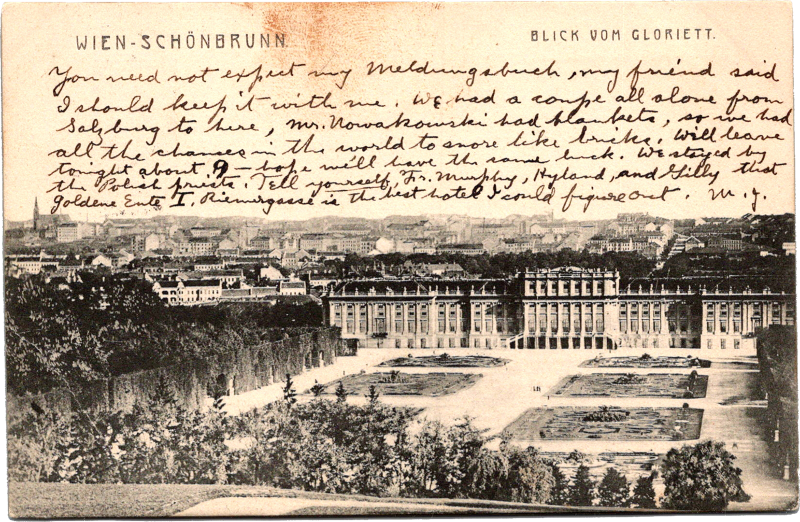 WIEN-SCHÖNBRUNN.
BLICK VOM GLORIETT.
You need not expect my Meldungsbuch, my friend said
I should keep it with me. We had a coupe all alone from
Salzburg to here, Mr. Nowakowski had blankets, so we had
all the chances in the world to snore like bricks. Will leave
tonight about 9 – hope we'll have the same luck. We stayed by
the Polish priests. Tell yourself, Fr. Murphy, Hyland, and Gilly that
Goldene Ente I. Riemergasse is the best hotel I could figure out. M. J.